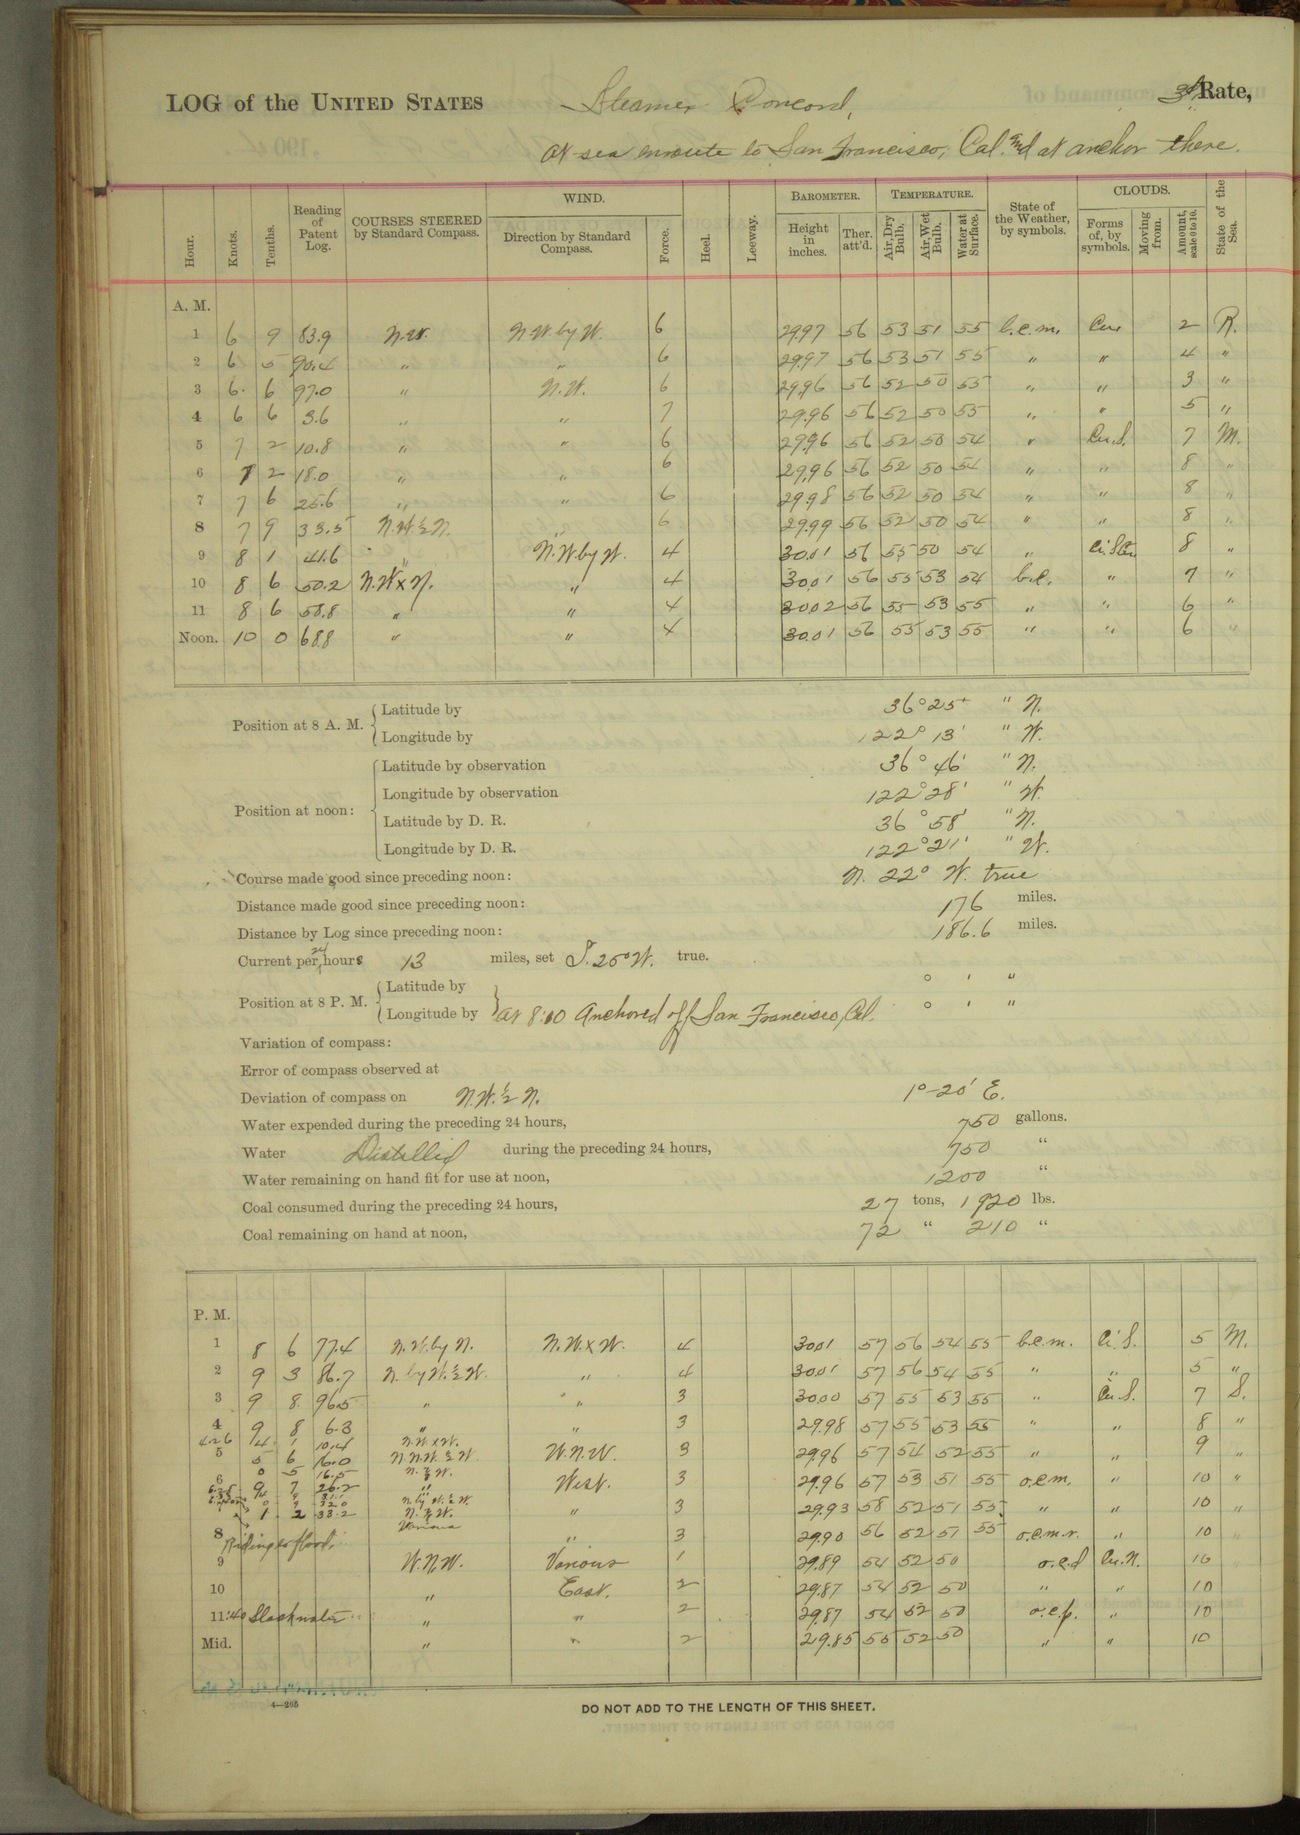 LOG of the UNITED STATES Steamer Concord, 3d Rate,
At sea enroute to San Francisco, Cal. and at anchor there.
Hour. Knots. Tenths. Reading of Patent Log. COURSES STEERED by Standard Compass. WIND. Direction by Standard Compass. Force. Heel. Leeway. BAROMETER. Height in inches. Ther. att'd. TEMPERATURE. Air, Dry Bulb. Air, Wet Bulb. Water at Surface. State of the Weather, by symbols. CLOUDS. Forms of, by symbols. Moving from. Amount, scale 0 to 10. State of the Sea.
A. M.
1 6 9 83.9 N.W. N.W. by W. 6 29.97 56 53 51 55 b.c.m. Cu. 2 R.
2 6 5 90.4 " " 6 29.97 56 53 51 55 " " 4 "
3 6 6 97.0 " N.W. 6 29.96 56 52 50 55 " " 3 "
4 6 6 3.6 " " 7 29.96 56 52 50 55 " " 5 "
5 7 2 10.8 " " 6 29.96 56 52 50 54 " Cu.S. 7 M.
6 7 2 18.0 " " 6 29.96 56 52 50 54 " " 8 "
7 7 6 25.6 " " 6 29.98 56 52 50 54 " " 8 "
8 7 9 33.5 N.W.½N. " 6 29.99 56 52 50 54 " " 8 "
9 8 1 41.6 " N.W. by W. 4 30.01 56 55 50 54 " 8 "
10 8 6 50.2 N.W x N. " 4 30.01 56 55 53 54 b.c. " 7 "
11 8 6 58.8 " " 4 30.02 56 55 53 55 " " 6 "
Noon. 10 0 68.8 " " 4 30.01 56 55 53 55 " " 6 "
Position at 8 A. M. Latitude by 36° 25' " N.
Longitude by 122° 13' " W.
Position at noon: Latitude by observation 36° 46' " N.
Longitude by observation 122° 28' " W.
Latitude by D. R. 36° 58' " N.
Longitude by D. R. 122° 21' " W.
Course made good since preceding noon: N. 22° W. true
Distance made good since preceding noon: 176 miles.
Distance by Log since preceding noon: 186.6 miles.
Current per 24 hours 13 miles, set S. 25° W. true.
Position at 8 P. M. Latitude by ° ' "
Longitude by At 8:10 Anchored off San Francisco, Cal. ° ' "
Variation of compass:
Error of compass observed at
Deviation of compass on N.W.½ N. 1°-20' E.
Water expended during the preceding 24 hours, 750 gallons.
Water Distilled during the preceding 24 hours, 750 "
Water remaining on hand fit for use at noon, 1200 "
Coal consumed during the preceding 24 hours, 27 tons, 1920 lbs.
Coal remaining on hand at noon, 72 " 210 "
P. M.
1 8 6 77.4 N.W. by N. N.W. x W. 4 30.01 57 56 54 55 b.c.m. Ci.S. 5 M.
2 9 3 86.7 N. by W.½W. " 4 30.01 57 56 54 55 " " 5 "
3 9 8 96.5 " " 3 30.00 57 55 53 55 " Cu.S. 7 S.
4 9 8 6.3 " " 3 29.98 57 55 53 55 " " 8 "
4.26 4 1 10.4 N.W. x W.
5 5 6 16.0 N.N.W.½W. W.N.W. 3 29.96 57 54 52 55 " " 9 "
0 5 16.5
6 9 7 26.2 " West. 3 29.96 57 53 51 55 o.c.m. " 10 "
N. by W.½W.
1 2 33.2 " 3 29.93 58 52 51 55 " " 10 "
Various
8 Riding to flood. " 3 29.90 56 52 51 55 o.c.m.r. " 10 "
9 W.N.W. Various 1 29.89 54 52 50 o.c.d Cu.N. 10 "
10 " East. 2 29.87 54 52 50 " " 10
11:40 Slack water " " 2 29.87 54 52 50 o.c.p. " 10
Mid. " " 2 29.85 55 52 50 " " 10
4—205
DO NOT ADD TO THE LENGTH OF THIS SHEET.